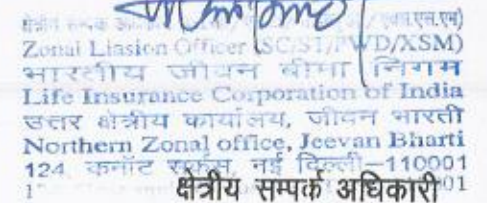 Zonal Liasion Officer (SC/ST/PWD/XSM)
भारतीय जीवन बीमा निगम
Life Insurance Corporation of India
उत्तर क्षेत्रीय कार्यालय, जीवन भारती
Northern Zonal office, Jeevan Bharti
124, कनॉट सर्कस, नई दिल्ली-110001
क्षेत्रीय सम्पर्क अधिकारी